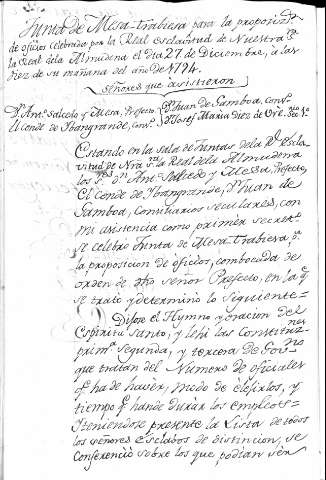 Junta de Mesa-trabiesa para la proposizn
de oficios celebrada por la Real esclavitud de Nuestra Sra
la Real dela Almudena el dia 27. de Diciembre, a las
diez de su mañana del año de 1794.
Señores que asistieron
Dn. Anto. Salcedo y Mesa, Prefecto. Dn. Juan de Gamboa, consro.
El conde de Ibangrande, consro. Dn. Josef Maria Diez de Ore. Srio. 1º
Estando en la sala de Juntas dela Rl. Escla-
vitud de Nra. Sra. la Real dela Almudena
los Sres. Dn. Anto. Salcedo y Mesa, Prefecto,
El Conde de Ibangrande, Dn. Juan de
Gamboa, Consiliarios seculares, con
mi asistencia como primer secreto.
se celebró Junta de Mesa-trabiesa, pa.
la proposicion de oficios, combocada de
orden de dho señor Prefecto, en la qe.
se trató y determinó lo siguiente=
Dijose el Hymno y oracion del
Espiritu santo, y lehi las Constituznes
prima. segunda, y tercera de Govno.
que tratan del Numero de oficiales
qe. ha de haver, modo de elejirlos, y
tiempo qe. hande durar los empleos=
Y teniendose presente la Lista de todos
los señores Esclavos de distincion, se
Conferenció sobre los que podian sèr